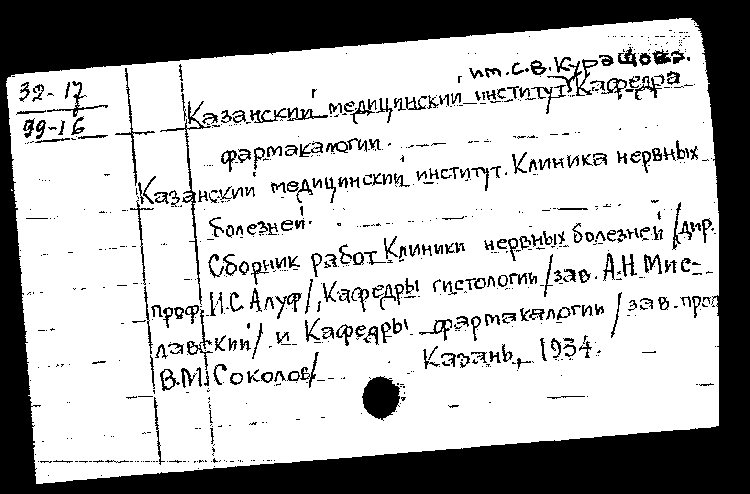 им. С.В. Курашова.
32-17
99-16
Казанский медицинский институт. Кафедра
фармакалогии.
Казанский медицинский институт. Клиника нервных
болезней.
Сборник работ Клиники нервных болезней /дир.
проф. И.С. Алуф/, Кафедры гистологии /зав. А.Н. Мис-
лавский/ и Кафедры фармакалогии /зав. проф
В.М. Соколов/ Казань, 1934.